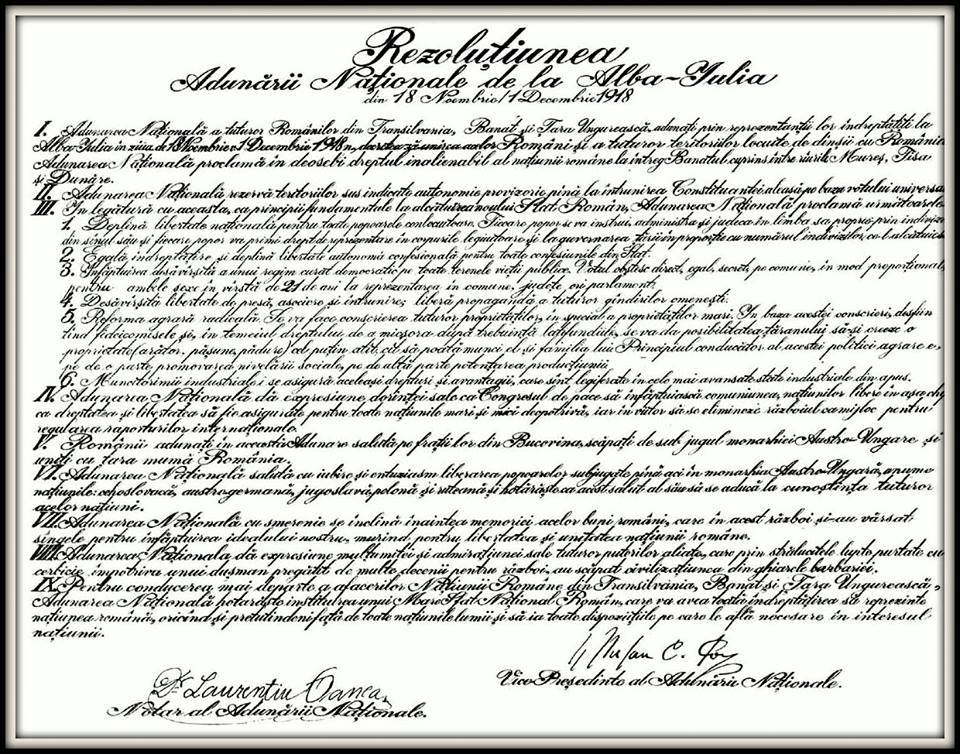 Rezoluțiunea
Adunării Naționale de la Alba-Iulia
din 18 Noembrie/1 Decembrie 1918
I. Adunarea Națională a tuturor Românilor din Transilvania, Banat și Țara Ungurească, adunați prin reprezentanții lor îndreptățiți la
Alba-Iulia în ziua de 18 Noembrie/1 Decembrie 1918, decretează unirea acelor Români și a tuturor teritoriilor locuite de dînșii cu România.
Adunarea Națională proclamă în deosebi dreptul inalienabil al națiunii române la întreg Banatul cuprins între rîurile Mureș, Tisa
și Dunăre.
II. Adunarea Națională rezervă teritoriilor sus indicate autonomie provizorie pînă la întrunirea Constituantei aleasă pe baza votului universal
III. În legătură cu aceasta, ca principii fundamentale la alcătuirea noului Stat Român, Adunarea Națională proclamă următoarele:
1. Deplină libertate națională pentru toate popoarele conlocuitoare. Fiecare popor se va instrui, administra și judeca în limba sa proprie prin indivizi
din sînul său și fiecare popor va primi drept de reprezentare în corpurile legiuitoare și la guvernarea țării în proporție cu numărul indivizilor, ce-l alcătuiesc
2. Egală îndreptățire și deplină libertate autonomă confesională pentru toate confesiunile din Stat.
3. Înfăptuirea desăvîrșită a unui regim curat democratic pe toate terenele vieții publice. Votul obștesc direct, egal, secret, pe comune, în mod proporțional,
pentru ambele sexe în vîrstă de 21 de ani la reprezentarea în comune, județe ori parlament.
4. Desăvîrșită libertate de presă, asociere și întrunire; liberă propagandă a tuturor gîndirilor omenești.
5. Reforma agrară radicală. Se va face conscrierea tuturor proprietăților, în special a proprietăților mari. În baza acestei conscrieri, desfiin
țînd fideicomisele și, în temeiul dreptului de a micșora după trebuință latifundiile, se va da posibilitatea țăranului să-și creeze o
proprietate (arător, pășune, pădure) cel puțin atît cît să poată munci el și familia lui. Principiul conducător al acestei politici agrare e,
pe de o parte promovarea nivelării sociale, pe de altă parte potențarea producțiunii.
6. Muncitorimii industriale i se asigură aceleași drepturi și avantagii, care sînt legiferate în cele mai avansate state industriale din apus.
IV. Adunarea Națională dă expresiune dorinței sale ca Congresul de pace să înfăptuiască comuniunea națiunilor libere în așa chip
ca dreptatea și libertatea să fie asigurate pentru toate națiunile mari și mici deopotrivă, iar în viitor să se elimineze războiul ca mijloc pentru
regularea raporturilor internaționale.
V. Românii adunați în această Adunare salută pe frații lor din Bucovina, scăpați de sub jugul monarhiei Austro-Ungare și
uniți cu țara mumă România.
VI. Adunarea Națională salută cu iubire și entuziasm liberarea popoarelor subjugate pînă aci în monarhia Austro-Ungară, anume
națiunile: cehoslovacă, austro-germană, jugoslavă, polonă și ruteană și hotărăște ca acest salut al său să se aducă la cunoștința tuturor
acelor națiuni.
VII. Adunarea Națională cu smerenie se înclină înaintea memoriei acelor buni români, care în acest război și-au vărsat
sîngele pentru înfăptuirea idealului nostru, murind pentru libertatea și unitatea națiunii române.
VIII. Adunarea Naționala dă expresiune mulțumitei și admirațiunei sale tuturor puterilor aliate, care prin strălucitele lupte purtate cu
cerbicie împotriva unui dușman pregătit de multe decenii pentru război, au scăpat civilizațiunea din ghiarele barbariei.
IX. Pentru conducerea mai departe a afacerilor Națiunii Române din Transilvania, Banat și Țara Ungurească,
Adunarea Națională hotărăște instituirea unui Mare Sfat Național Român, care va avea toată îndreptățirea să reprezinte
națiunea română, oricînd și pretutindeni față de toate națiunile lumii și să ia toate dispozițiile pe care le află necesare în interesul
națiunii.
Dr Laurențiu Oanea
Notar al Adunării Naționale.
Vice Președinte al Adunării Naționale.